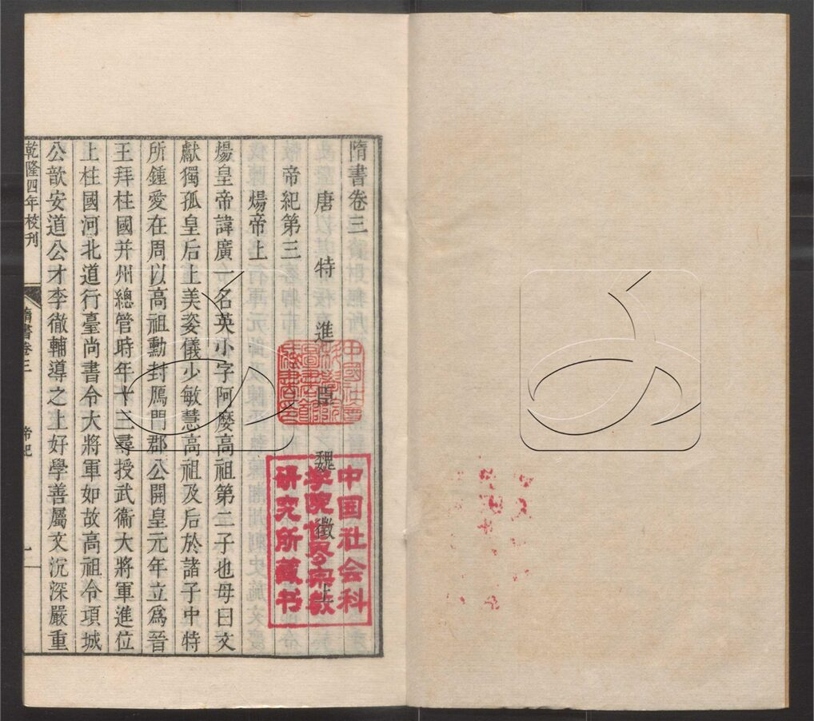 隋書卷三
唐特進臣魏徵上
帝紀第三
煬帝上
煬皇帝諱廣一名英小字阿㦄高祖第二子也母曰文
獻獨孤皇后上美姿儀少敏慧高祖及后於諸子中特
所鍾愛在周以高祖勳封鴈門郡公開皇元年立爲晉
王拜柱國并州總管時年十三尋授武衞大將軍進位
上柱國河北道行臺尚書令大將軍如故高祖令項城
公歆安道公才李徹輔導之上好學善屬文沉深嚴重
乾隆四年校刊
隋書卷三
帝紀
一
中国社会科
学院世界宗教
研究所藏书